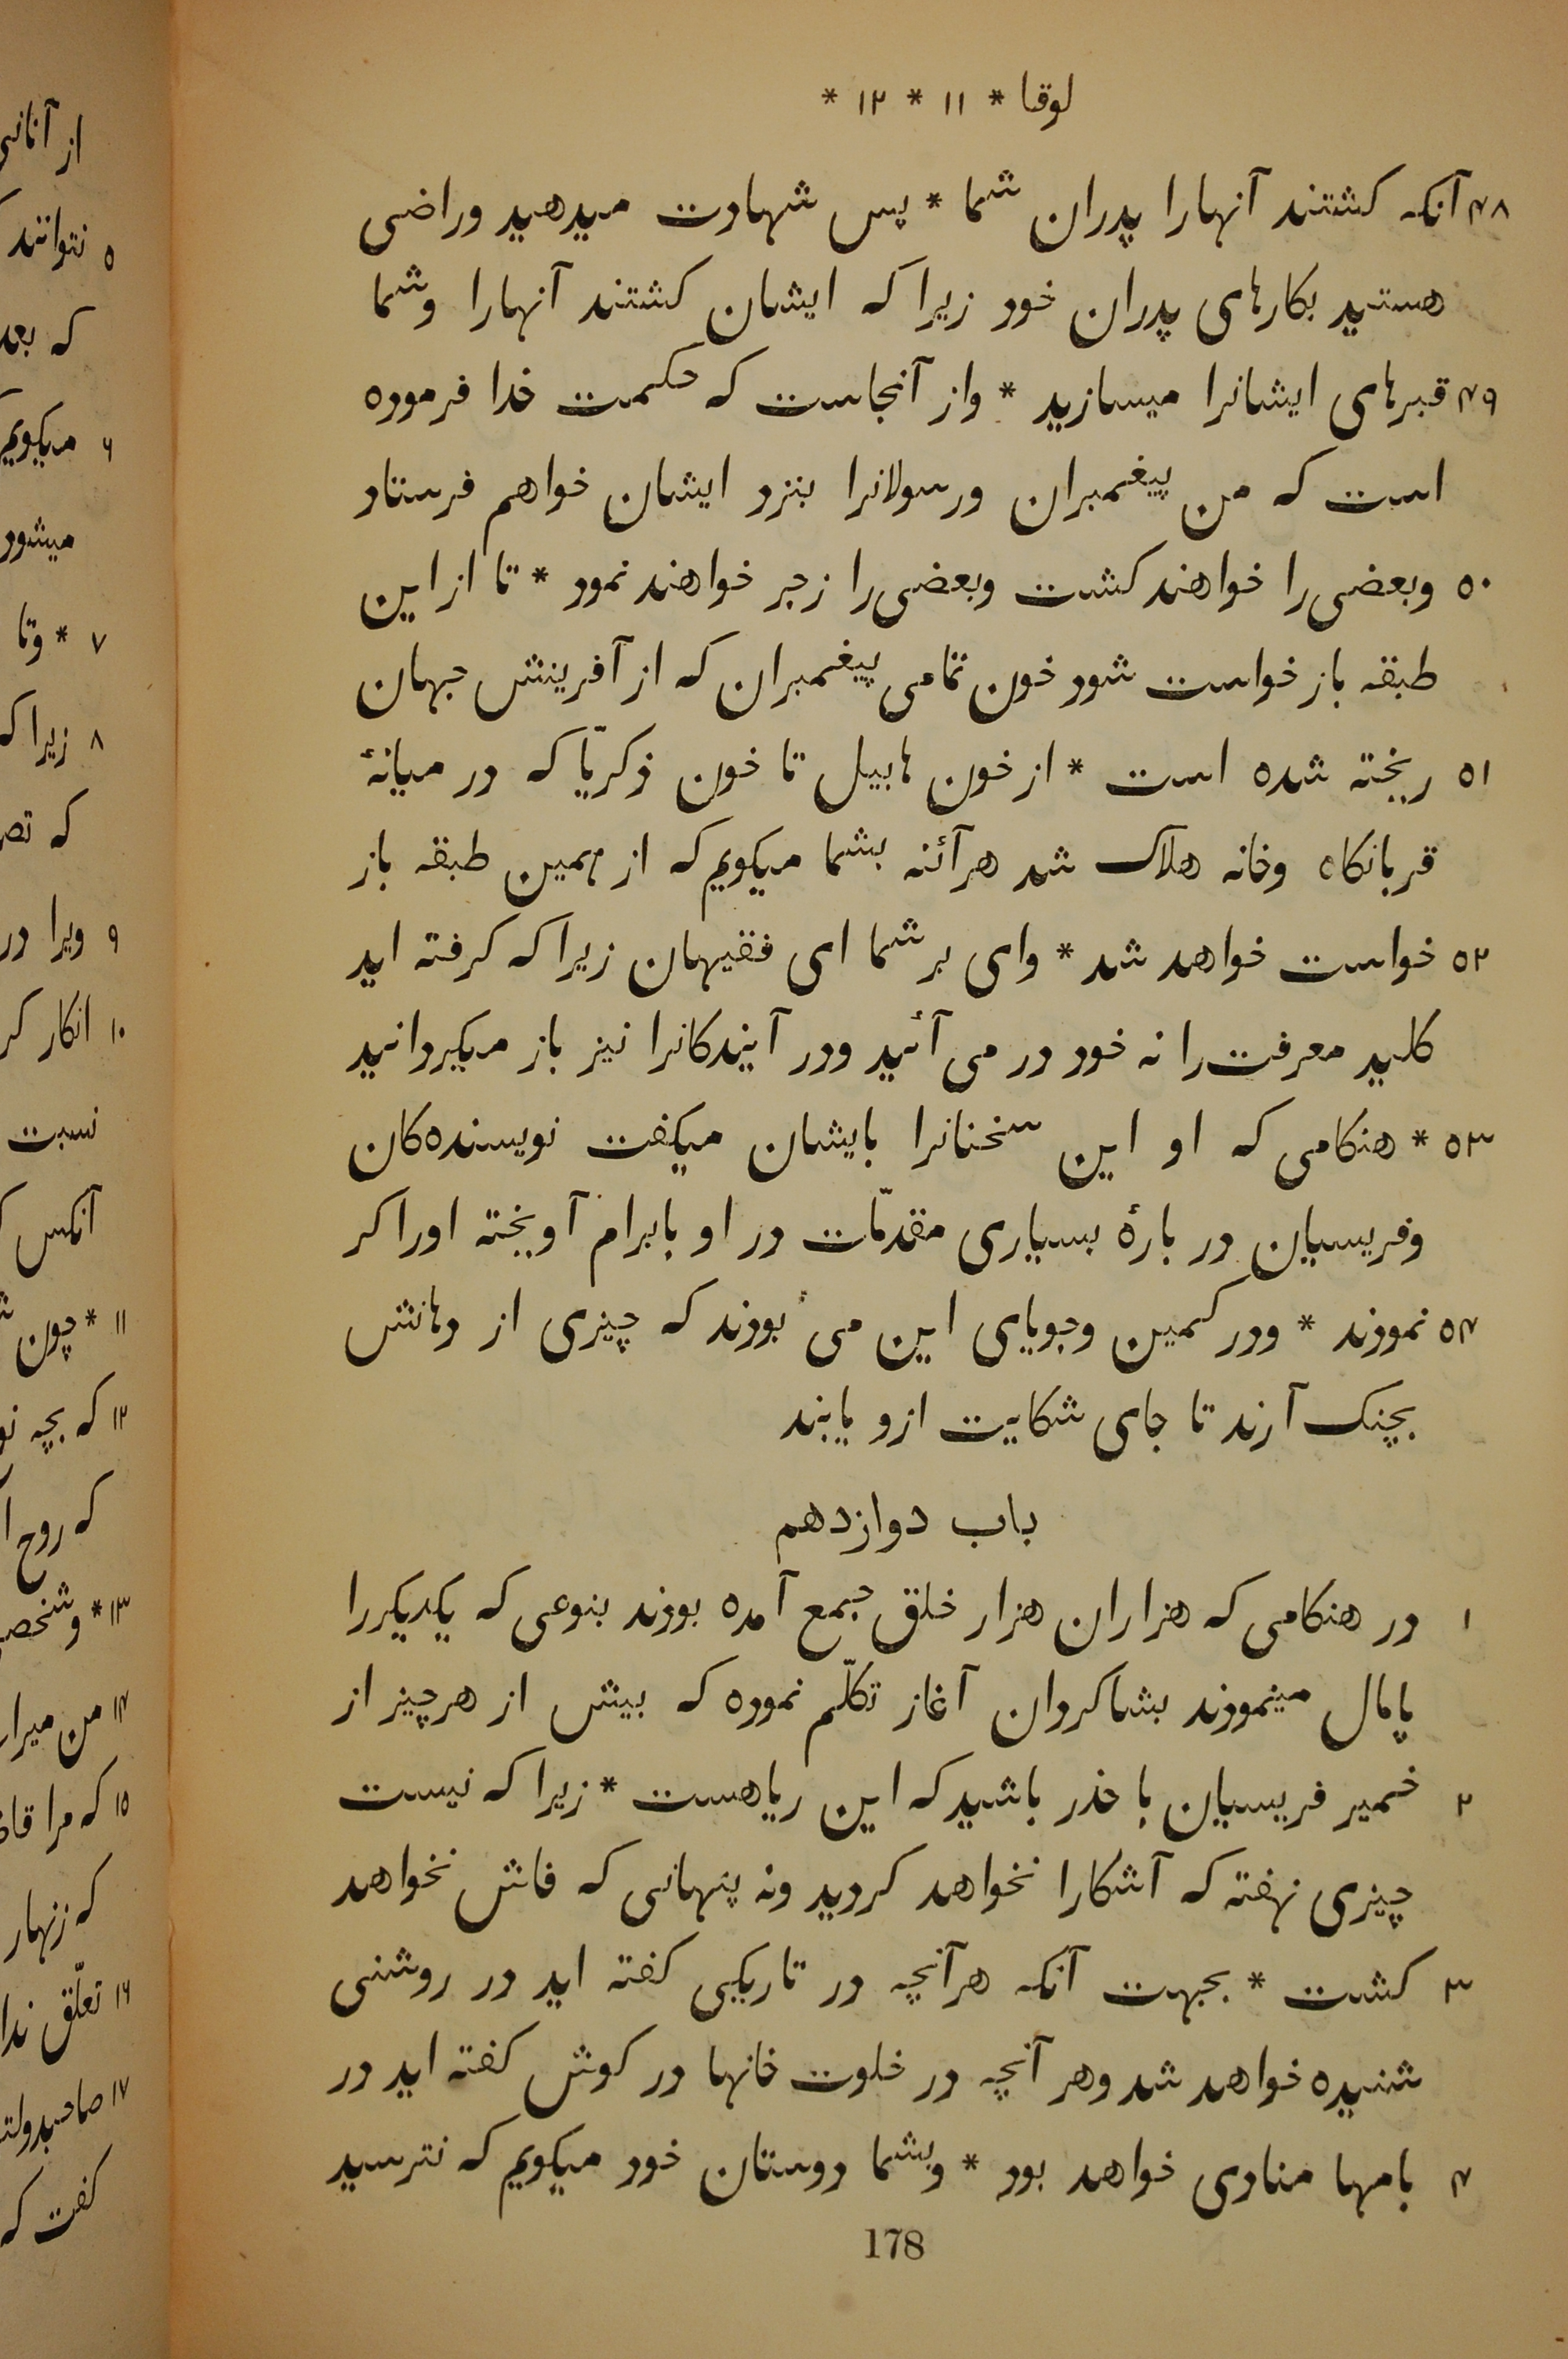 لوقا * ۱۱ * ۱۲ *
۴۸ آنکه کشتند آنهارا پدران شما * پس شهادت میدهید وراضی
هستید بکارهای پدران خود زیرا که ایشان کشتند آنهارا وشما
۴۹ قبرهای ایشانرا میسازید * واز آنجاست که حکمت خدا فرموده
است که من پیغمبران ورسولانرا بنزد ایشان خواهم فرستاد
۵۰ وبعضی را خواهند کشت وبعضی را زجر خواهند نمود * تا از این
طبقه باز خواست شود خون تمامی پیغمبران که از آفرینش جهان
۵۱ ریخته شده است * از خون هابیل تا خون ذکریّا که در میانهٔ
قربانکاه وخانه هلاک شد هرآئنه بشما میکویم که از همین طبقه باز
۵۲ خواست خواهد شد * وای بر شما ای فقیهان زیرا که کرفته اید
کلید معرفت را نه خود در می آئید ودر آیندکانرا نیز باز میکردانید
۵۳ * هنکامی که او این سخنانرا بایشان میکفت نویسنده کان
وفریسیان در بارهٔ بسیاری مقدّمات در او بابرام آویخته اورا کر
۵۴ نمودند * ودر کمین وجویای این می بودند که چیزی از دهانش
بچنک آرند تا جای شکایت ازو یابند
باب دوازدهم
۱ در هنکامی که هزاران هزار خلق جمع آمده بودند بنوعی که یکدیکررا
پامال مینمودند بشاکردان آغاز تکلّم نموده که بیش از هرچیز از
۲ خمیر فریسیان با خذر باشید که این ریاهست * زیرا که نیست
چیزی نهفته که آشکارا نخواهد کردید ونه پنهانی که فاش نخواهد
۳ کشت * بجهت آنکه هرآنچه در تاریکی کفته اید در روشنی
شنیده خواهد شد وهر آنچه در خلوت خانها در کوش کفته اید در
۴ بامها منادی خواهد بود * وبشما دوستان خود میکویم که نترسید
178
از آنانی
۵ نتوانند
که بعد
۶ میکویم
میشود
۷ * وتا
۸ زیرا که
که تص
۹ ویرا در
۱۰ انکار کر
نسبت
آنکس
۱۱ * چون
۱۲ که بچه
که روح
۱۳ * وشخص
۱۴ من میرا
۱۵ که مرا
که زنهار
۱۶ تعلّق ندا
۱۷ صاحبدولت
کفت که